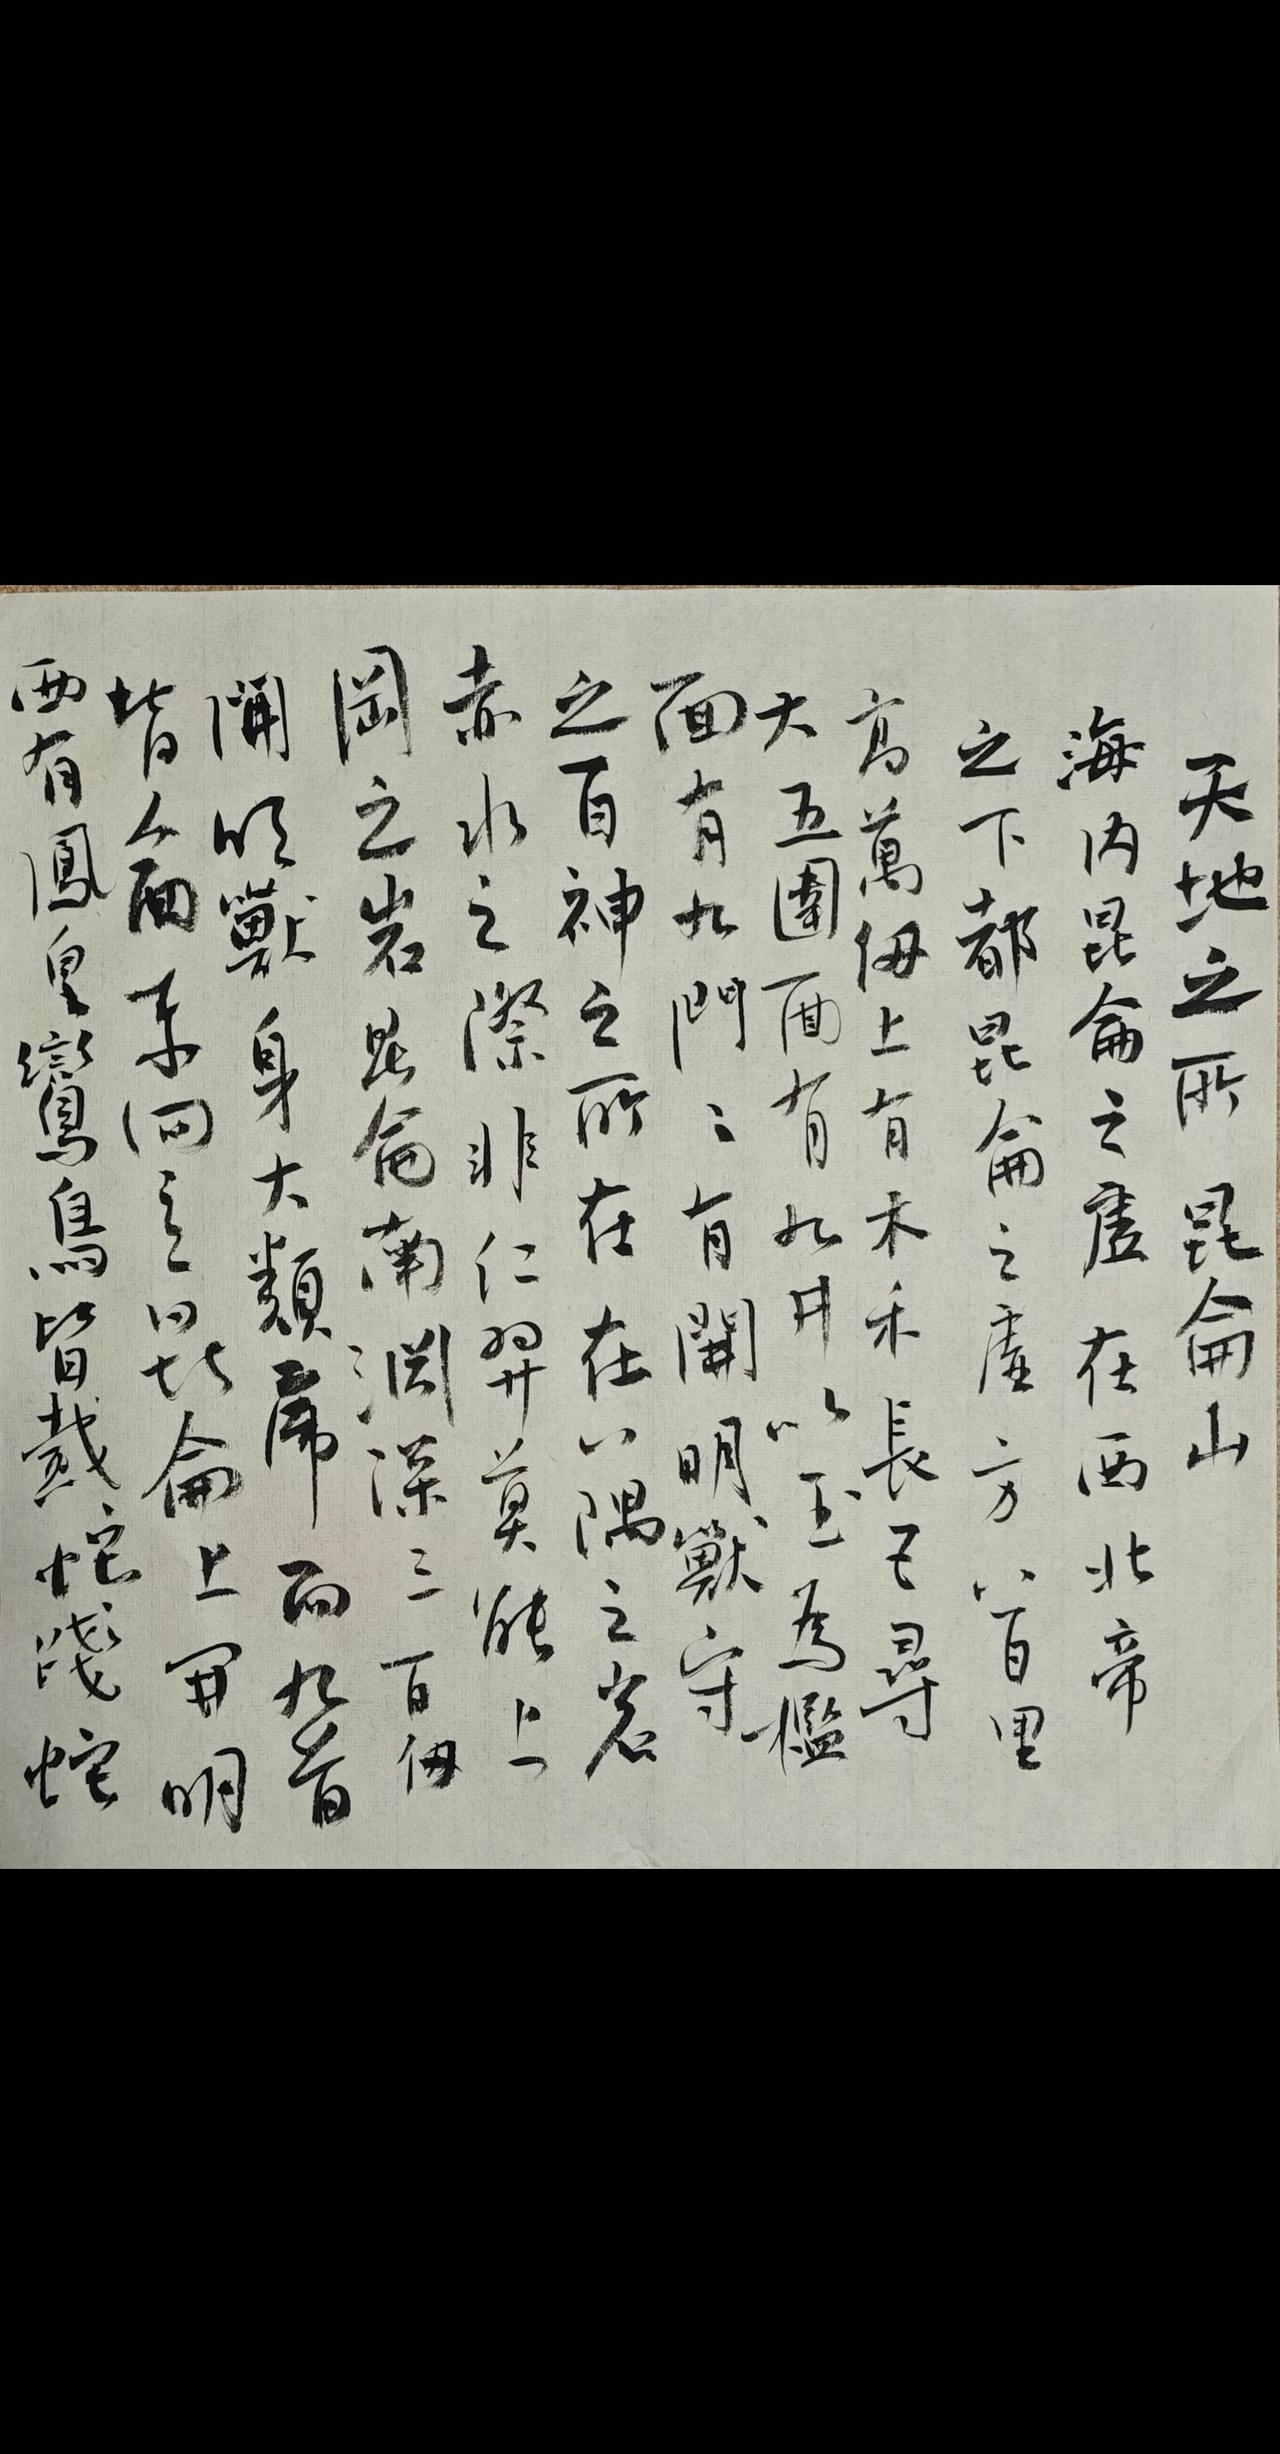 天地之所 昆侖山
海内昆侖之虛在西北帝
之下都昆侖之虛方八百里
高萬仞上有木禾長五尋
大五圍面有九井以玉為檻
面有九門〻有開明獸守
之百神之所在在八隅之岩
赤水之際非仁羿莫能上
岡之岩昆侖南淵深三百仞
開明獸身大類虎而九首
皆人面東向立昆侖上開明
西有鳳皇鸞鳥皆戴蛇踐蛇